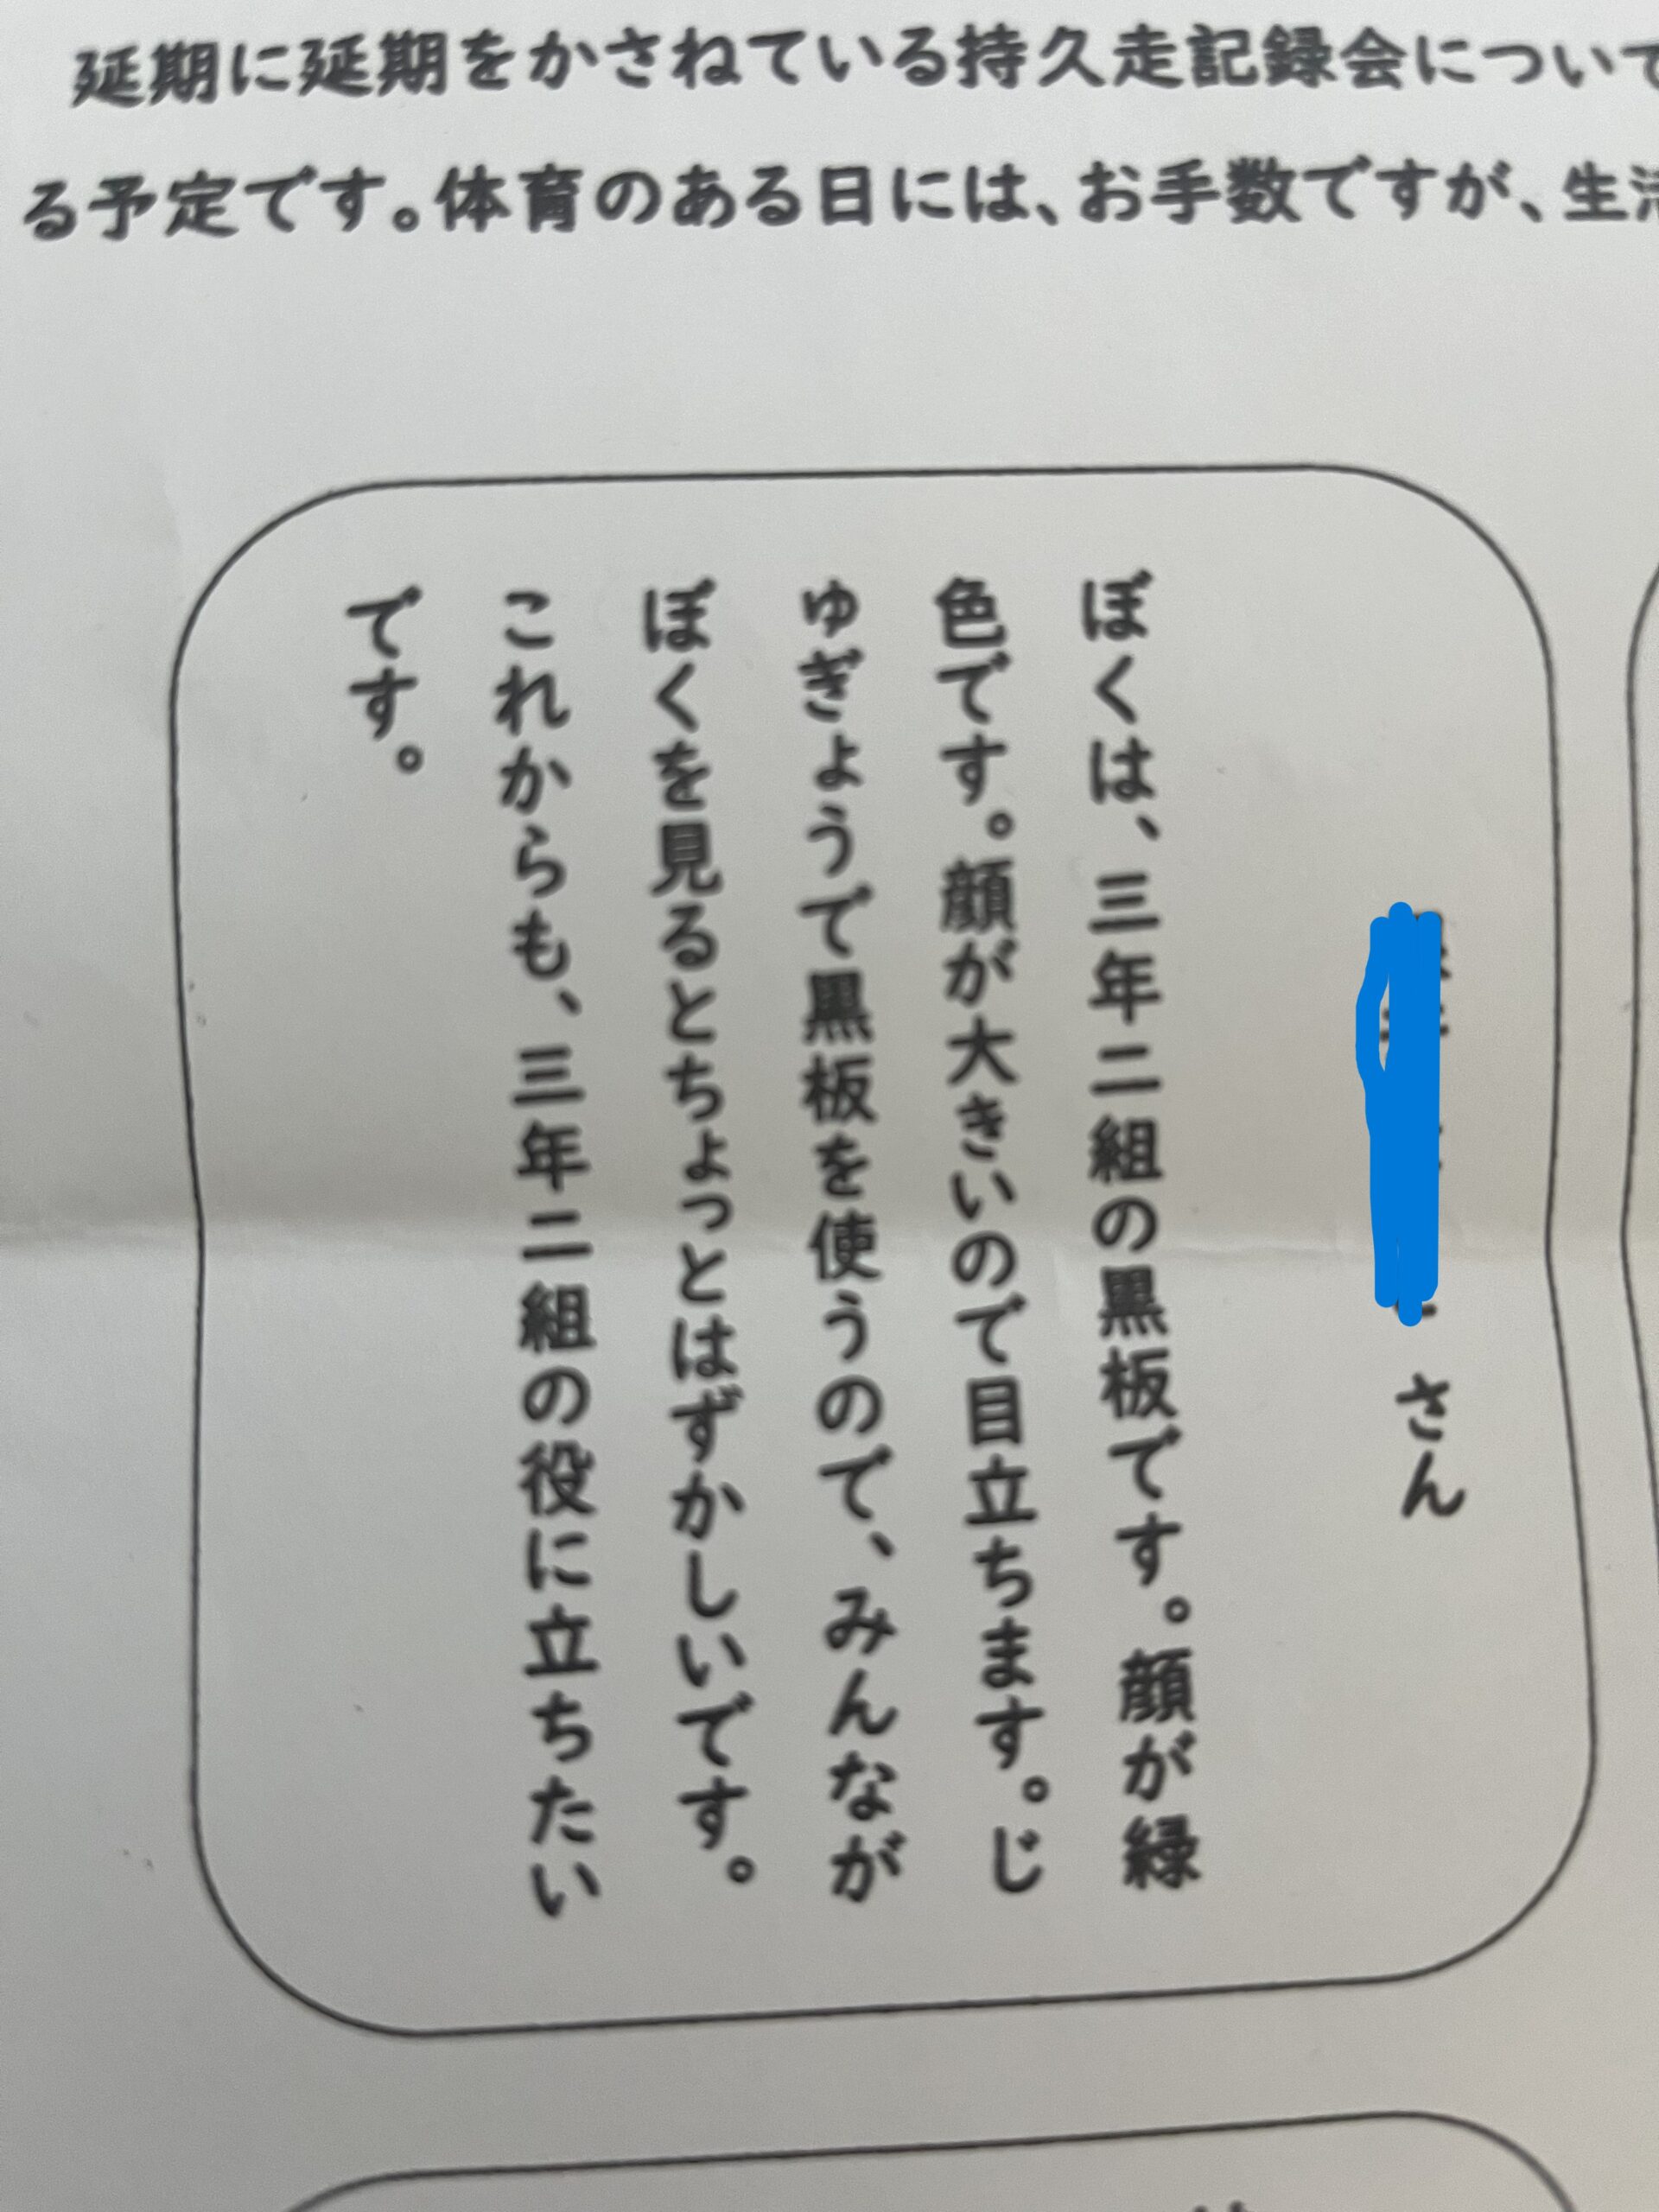 延期に延期をかさねている持久走記録会について
る予定です。体育のある日には、お手数ですが、生活
さん
ぼくは、三年二組の黒板です。顔が緑
色です。顔が大きいので目立ちます。じ
ゅぎょうで黒板を使うので、みんなが
ぼくを見るとちょっとはずかしいです。
これからも、三年二組の役に立ちたい
です。